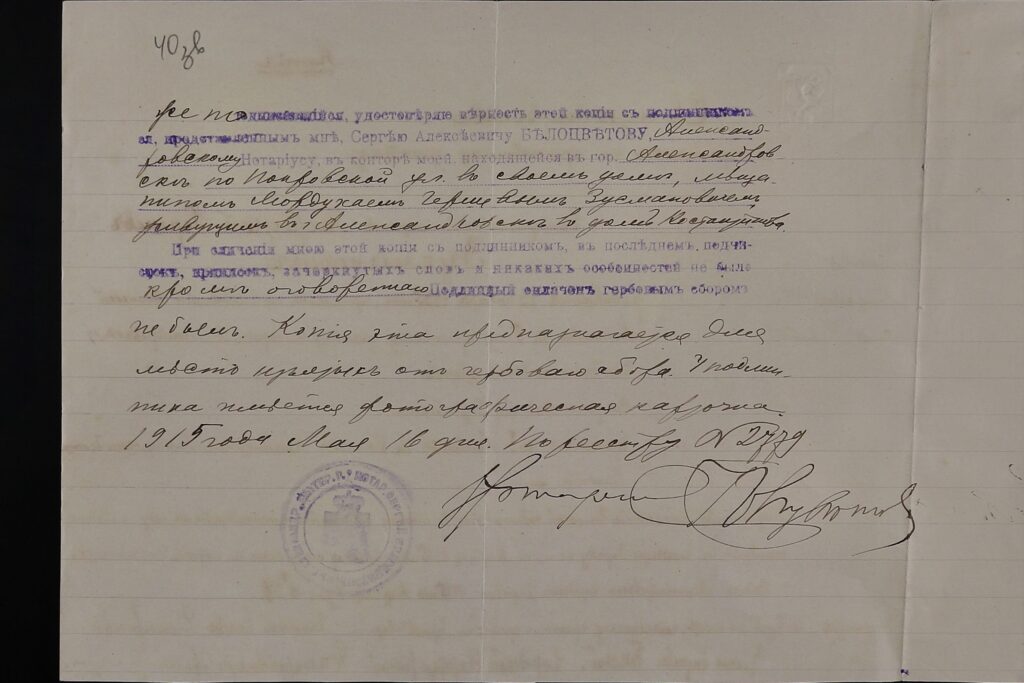 40 зв
удостовѣряю вѣрность этой копіи съ подлинникомъ
ея, представленнымъ мнѣ, Сергѣю Алексѣевичу БѢЛОЦВѢТОВУ, Александ-
ровскому Нотаріусу, въ конторѣ моей, находящейся въ гор. Александров
скѣ по Покровской ул. въ своемъ домѣ, мѣща-
ниномъ Мордухаемъ Зусмановичемъ,
живущимъ въ г. Александровскѣ въ домѣ
При сличеніи мною этой копіи съ подлинникомъ, въ послѣднемъ, подчи-
стокъ, приписокъ, зачеркнутыхъ словъ и никакихъ особенностей не было
кромѣ оговореннаго Подлинный оплаченъ гербовымъ сборомъ
не былъ. Копія эта предназначается для
мѣстъ изъятыхъ отъ гербоваго сбора. У подлин-
ника имѣется фотографическая карточка.
1915 года Мая 16 дня. По реестру № 2779
Нотаріусъ